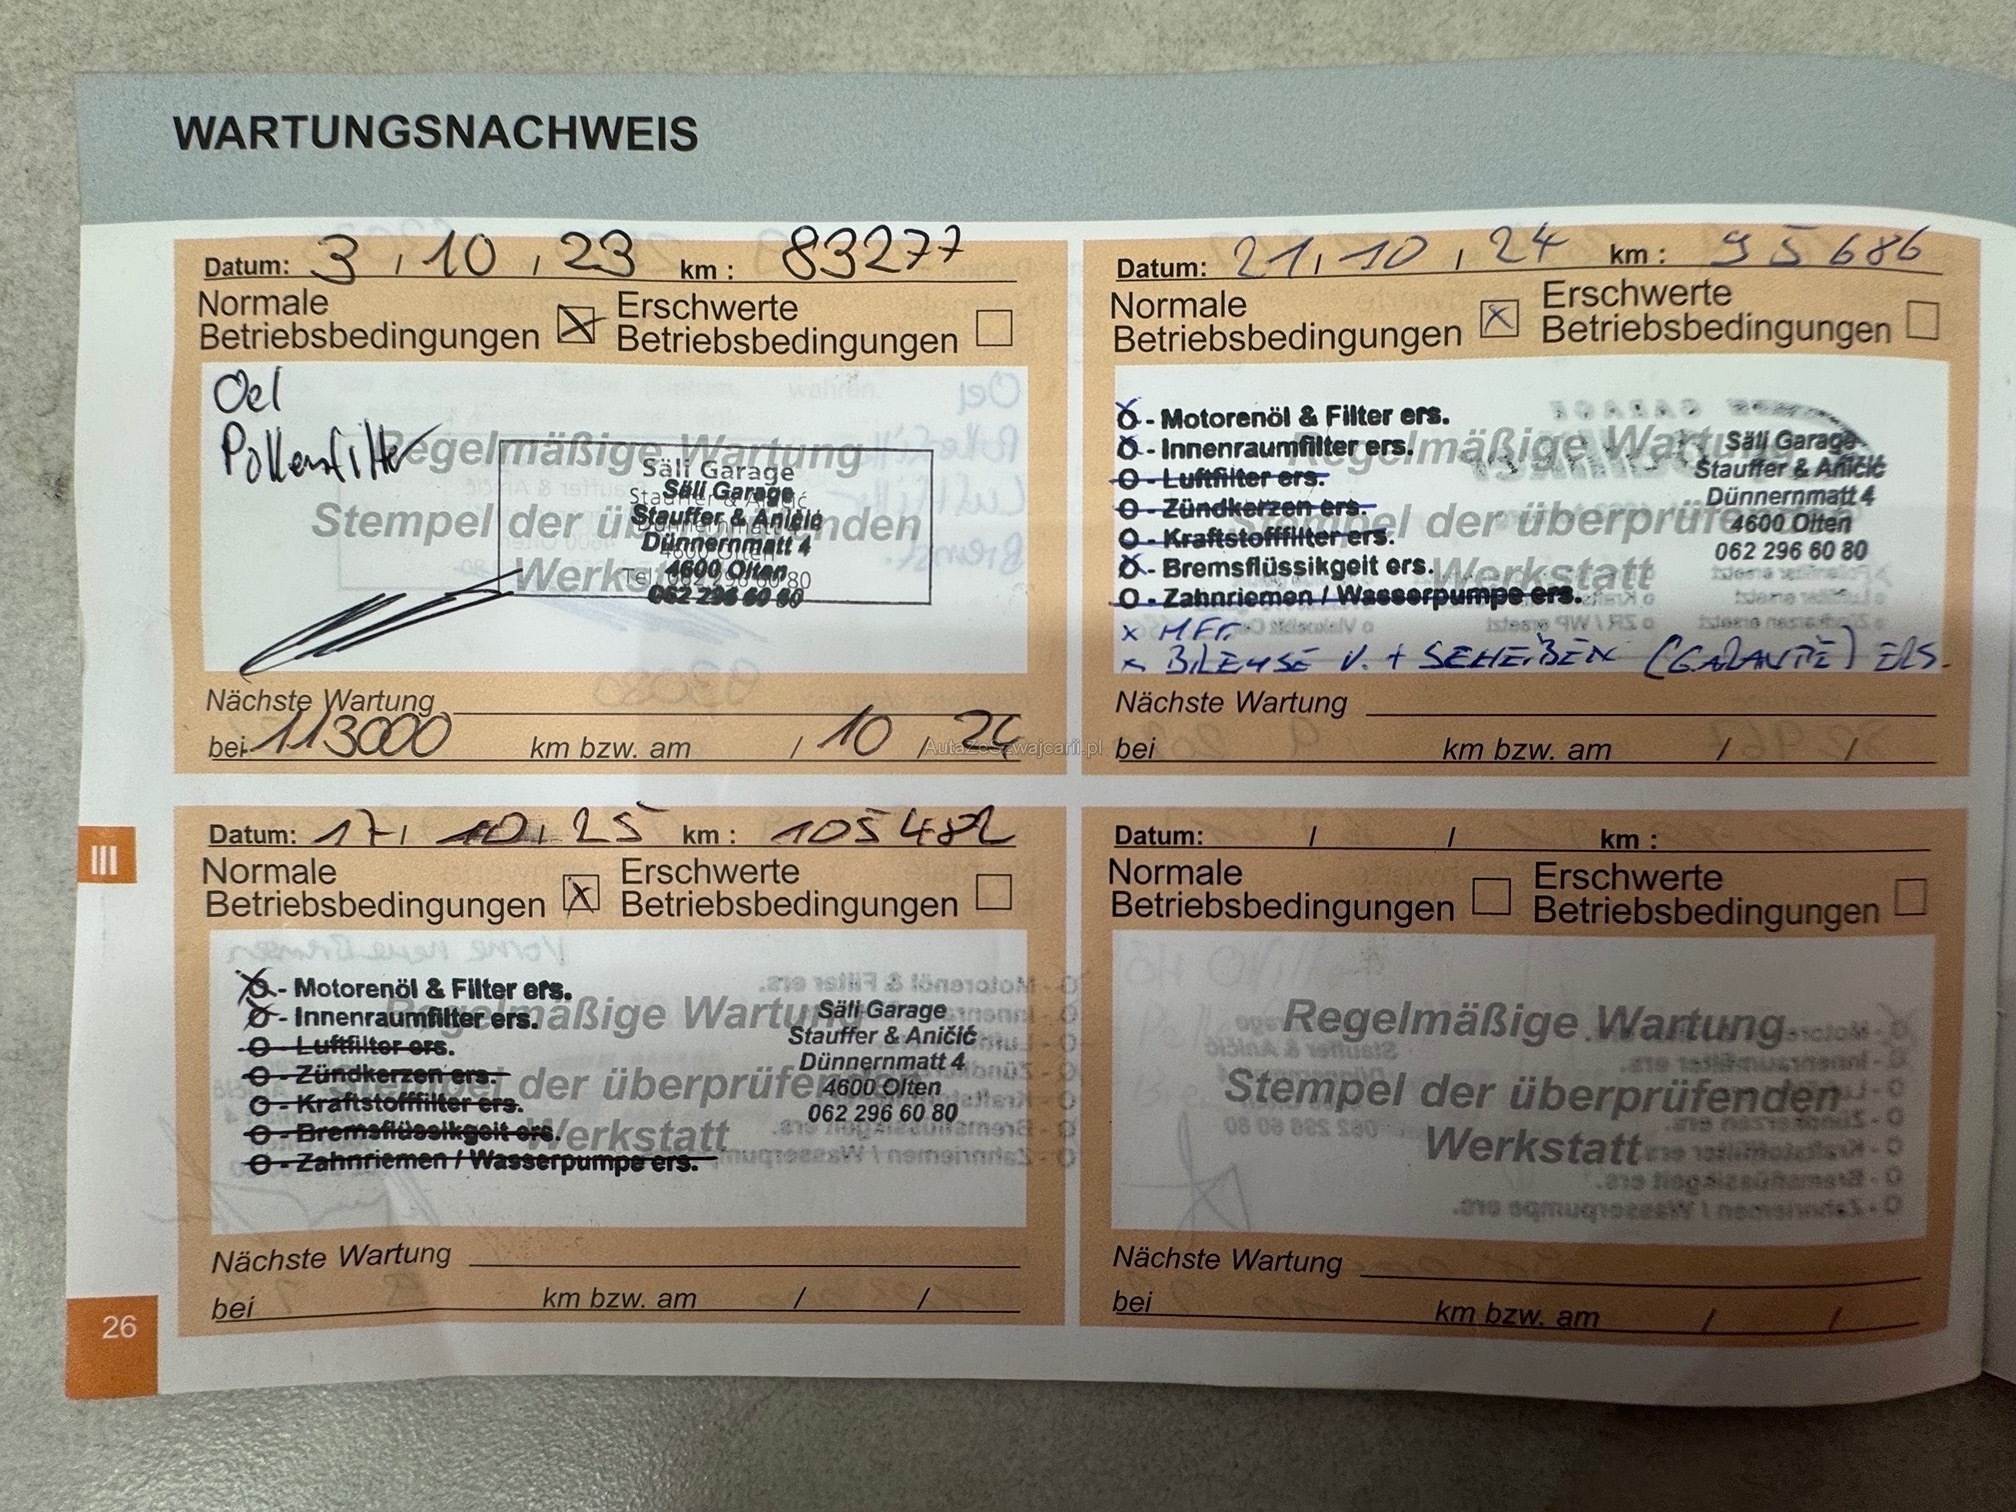 WARTUNGSNACHWEIS
Datum: 3 , 10 , 23 km : 83277
Normale Betriebsbedingungen Erschwerte Betriebsbedingungen
Oel
Pollenfilter
Regelmäßige Wartung
Stempel der überprüfenden
Werkstatt
Säli Garage
Stauffer & Aničić
Dünnernmatt 4
4600 Olten
Tel. 062 296 60 80
Säli Garage
Stauffer & Aničić
Dünnernmatt 4
4600 Olten
062 296 60 80
Nächste Wartung
bei 113000 km bzw. am / 10 / 24
Datum: 21 , 10 , 24 km : 95686
Normale Betriebsbedingungen Erschwerte Betriebsbedingungen
O - Motorenöl & Filter ers.
O - Innenraumfilter ers.
O - Luftfilter ers.
O - Zündkerzen ers.
O - Kraftstofffilter ers.
O - Bremsflüssikgeit ers.
O - Zahnriemen / Wasserpumpe ers.
Regelmäßige Wartung
Stempel der überprüfenden
Werkstatt
Säli Garage
Stauffer & Aničić
Dünnernmatt 4
4600 Olten
062 296 60 80
x BREMSE V. + SCHEIBEN (GARANTIE) ERS.
Nächste Wartung
bei km bzw. am / /
AutaZeSzwajcarii.pl
III
Datum: 17, 10, 25 km : 105482
Normale Betriebsbedingungen Erschwerte Betriebsbedingungen
O - Motorenöl & Filter ers.
O - Innenraumfilter ers.
O - Luftfilter ers.
O - Zündkerzen ers.
O - Kraftstofffilter ers.
O - Bremsflüssikgeit ers.
O - Zahnriemen / Wasserpumpe ers.
Regelmäßige Wartung
Stempel der überprüfenden
Werkstatt
Säli Garage
Stauffer & Aničić
Dünnernmatt 4
4600 Olten
062 296 60 80
Nächste Wartung
bei km bzw. am / /
Datum: / / km :
Normale Betriebsbedingungen Erschwerte Betriebsbedingungen
Regelmäßige Wartung
Stempel der überprüfenden
Werkstatt
Nächste Wartung
bei km bzw. am / /
26